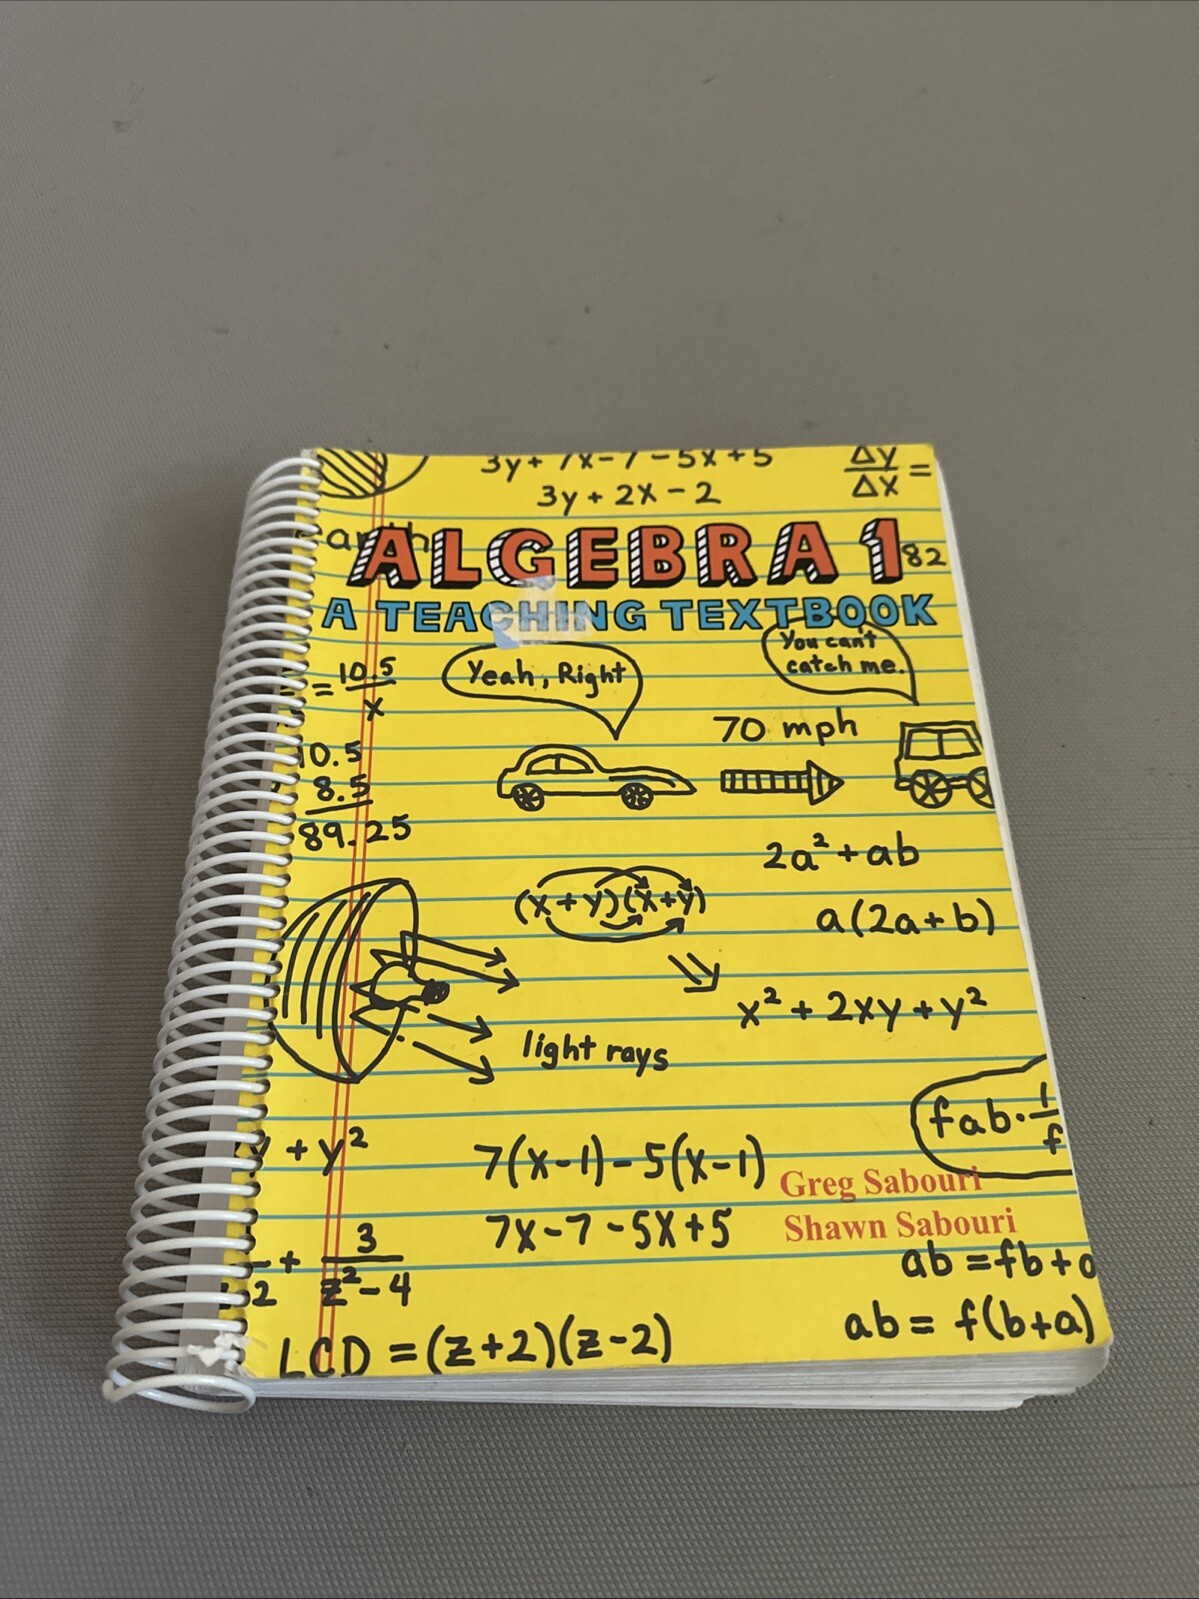 3y + 7x - 7 - 5x + 5
3y + 2x - 2
Δy/Δx =
ALGEBRA 1
82
A TEACHING TEXTBOOK
= 10.5/x
Yeah, Right
You can't
catch me.
70 mph
10.5
8.5
89.25
2a² + ab
(x + y)(x + y)
a(2a + b)
x² + 2xy + y²
light rays
fab · 1/f
+ y²
7(x - 1) - 5(x - 1)
Greg Sabouri
7x - 7 - 5x + 5
Shawn Sabouri
2 + 3/z² - 4
ab = fb +
LCD = (z + 2)(z - 2)
ab = f(b + a)